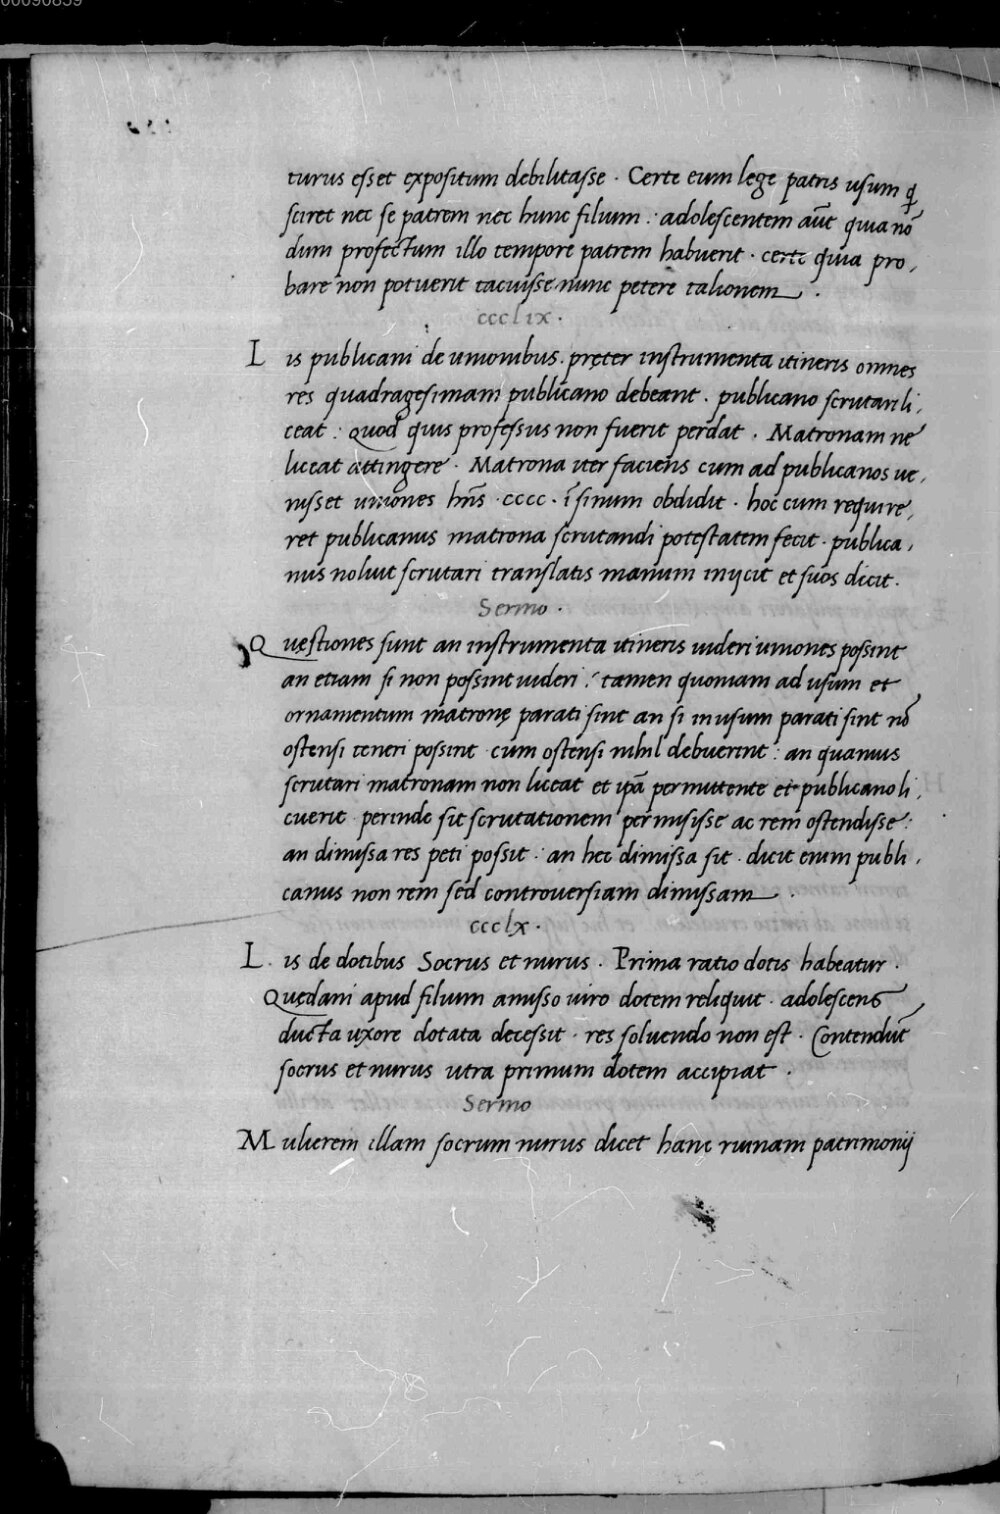 00090859
turus esset expositum debilitasse . Certe eum lege patris usum q̃
sciret nec se patrem nec hunc filium : adolescentem aūt quia nō
dum profectum illo tempore patrem habuerit . certe quia pro,
bare non potuerit tacuisse nunc petere talionem .
ccclıx .
L is publicani de unionibus . pręter instrumenta itineris omnes
res quadragesimam publicano debeant . publicano scrutari li,
ceat : Quod quis professus non fuerit perdat . Matronam ne
liceat attingere . Matrona iter faciens cum ad publicanos ue,
nisset uniones hn̄s . cccc . ī sinum obdidit . hoc cum require,
ret publicanus matrona scrutandi potestatem fecit . publica,
nus noluit scrutari translatis manum inijcit et suos dicit .
Sermo .
Q uęstiones sunt an instrumenta itineris uideri uniones possint
an etiam si non possint uideri : tamen quoniam ad usum et
ornamentum matronę parati sint an si in usum parati sint nō
ostensi teneri possint cum ostensi nihil debuerint : an quamuis
scrutari matronam non liceat et ip̄a permittente et publicano li,
cuerit perinde sit scrutationem permisisse ac rem ostendisse :
an dimissa res peti possit : an hec dimissa sit . dicit enim publi,
canus non rem sed controuersiam dimissam .
ccclx .
L is de dotibus Socrus et nurus . Prima ratio dotis habeatur .
Quędam apud filium amisso uiro dotem reliquit . adolescens
ducta uxore dotata decessit . res soluendo non est . Contendūt
socrus et nurus utra primum dotem accipiat .
Sermo
M ulierem illam socrum nurus dicet hanc ruinam patrimonij